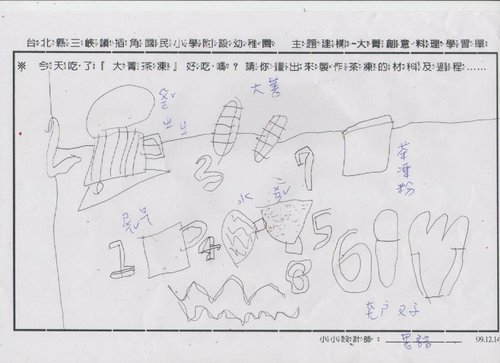 台北縣三峽鎮插角國民小學附設幼稚園 主題建構~大菁創意料理學習單
※ 今天吃了『大菁茶凍』好吃嗎？請你畫出來製作茶凍的材料及過程......
大菁
3
7
茶凍粉
水
1
4
5
8
6
小小設計師：
99.12.1